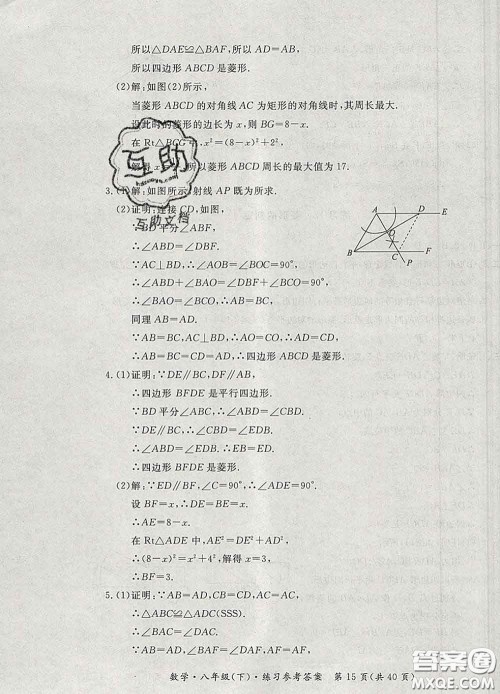 所以△DAE≌△BAF,所以 AD=AB,
所以四边形 ABCD 是菱形.
(2)解:如图(2)所示,
当菱形 ABCD 的对角线 AC 为矩形的对角线时,其周长最大.
设此时的菱形的边长为 x,则 BG=8-x.
在 Rt△BCG 中,x²=(8-x)²+2²,
解得 x= 所以菱形 ABCD 周长的最大值为 17.
3.(1)解:如图所示,射线 AP 既为所求.
(2)证明:连接 CD,如图,
∵BD 平分∠ABF,
∴∠ABD=∠DBF.
∵AC⊥BD,∴∠AOB=∠BOC=90°,
∴∠ABD+∠BAO=∠DBF+∠BCO=90°,
∴∠BAO=∠BCO,∴AB=BC.
同理 AB=AD.
∵AB=AD,AC⊥BD,∴AO=CO,∴AD=CD,
∴AB=BC=CD=AD,∴四边形 ABCD 是菱形.
A
D
E
O
B
C
F
P
4.(1)证明:∵DE∥BC,DF∥AB,
∴四边形 BFDE 是平行四边形.
∵BD 平分∠ABC,∴∠ABD=∠CBD.
∵DE∥BC,∴∠CBD=∠EDB.
∴∠ABD=∠EDB.∴BE=ED.
∴四边形 BFDE 是菱形.
(2)解:∵ED∥BF,∠C=90°,∴∠ADE=90°.
设 BF=x,∴DE=BE=x.
∴AE=8-x.
在 Rt△ADE 中,AE²=DE²+AD²,
∴(8-x)²=x²+4²,解得 x=3,
∴BF=3.
5.(1)证明:∵AB=AD,CB=CD,AC=AC,
∴△ABC≌△ADC(SSS).
∴∠BAC=∠DAC.
数学·八年级(下)·练习参考答案 第 15 页(共 40 页)
互助
互助文档
作业精灵
MXQE.COM